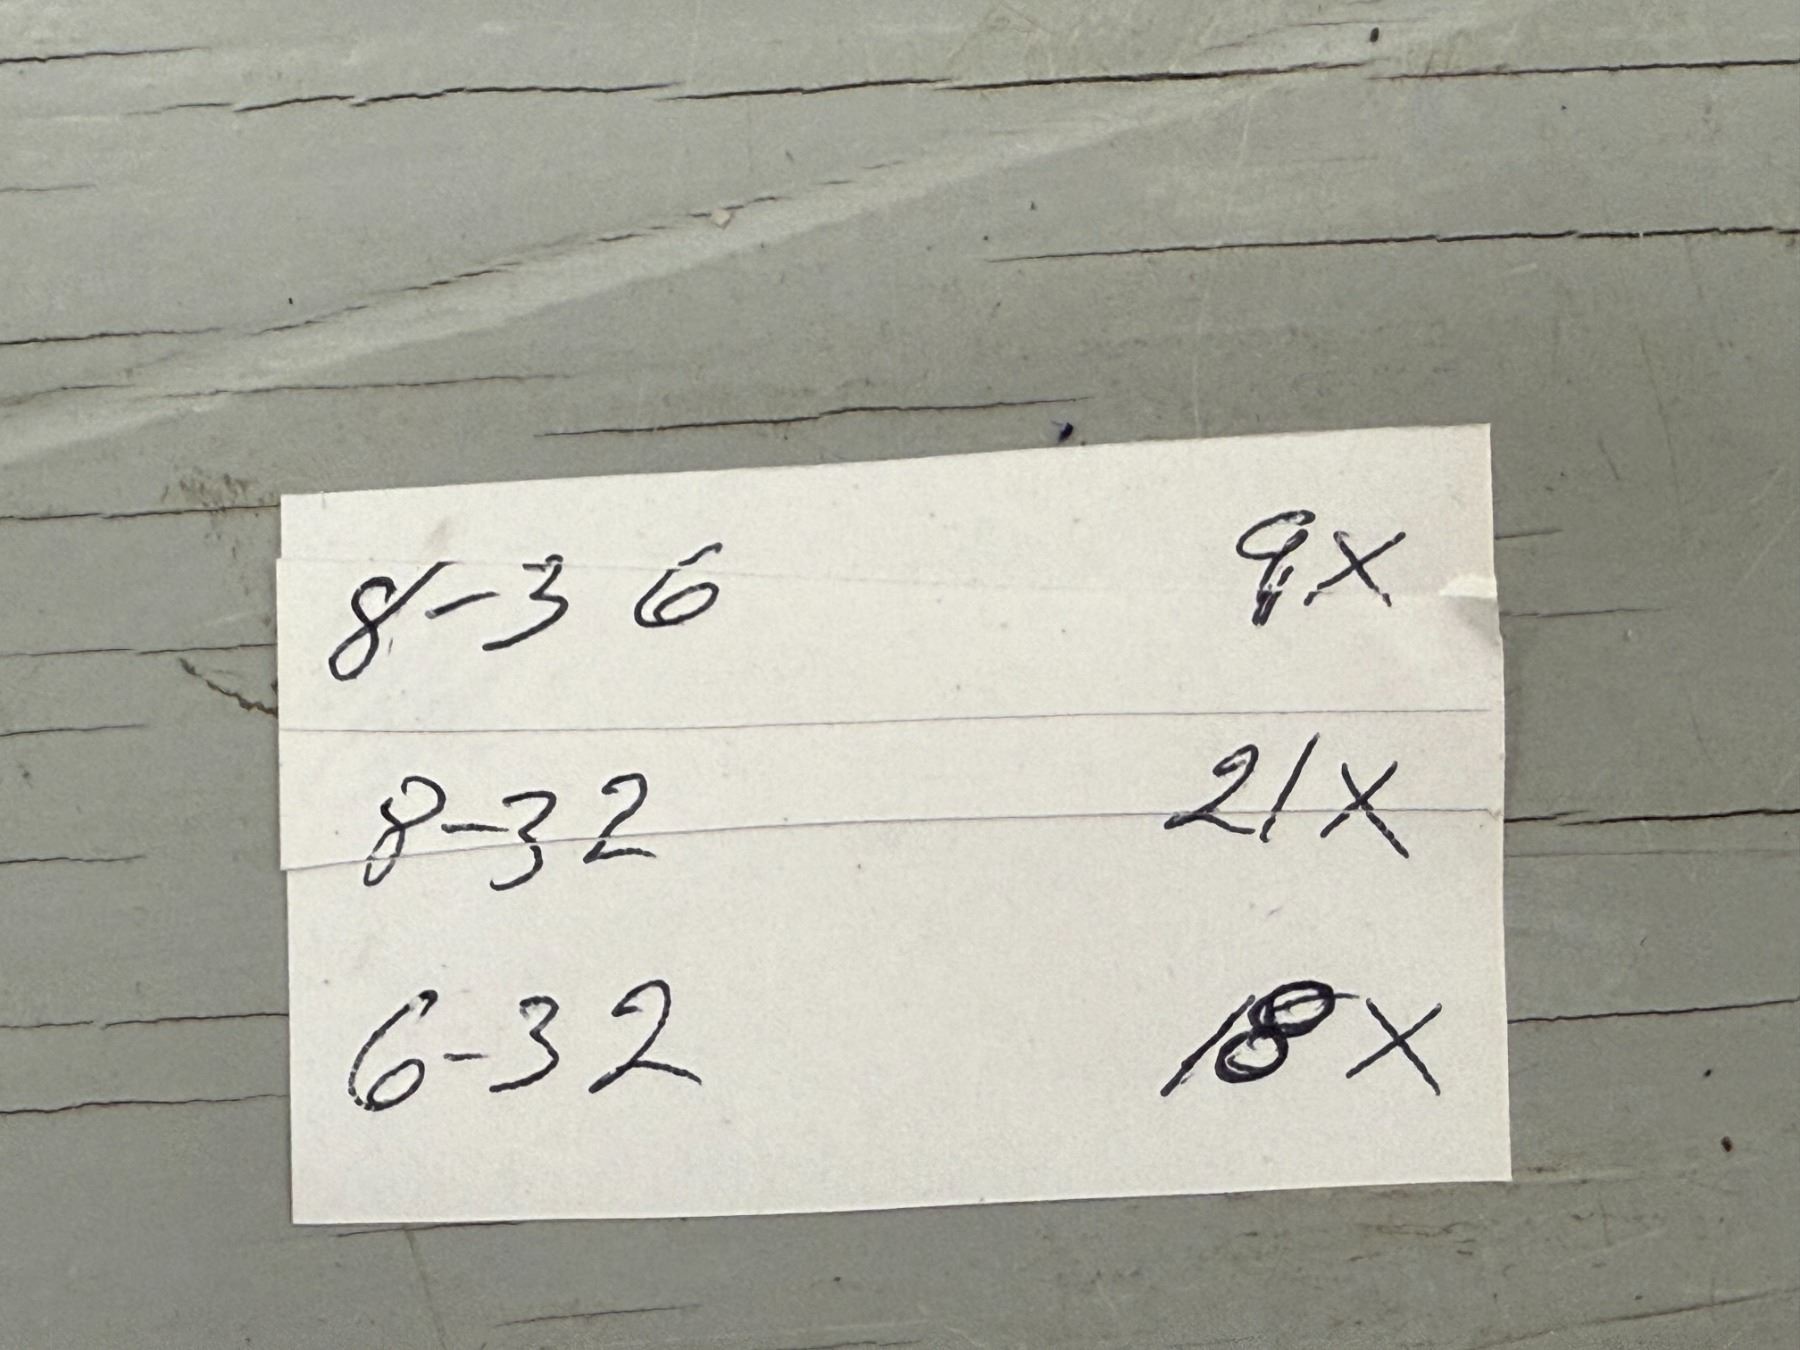 8-36 9x
8-32 21x
6-32 18x